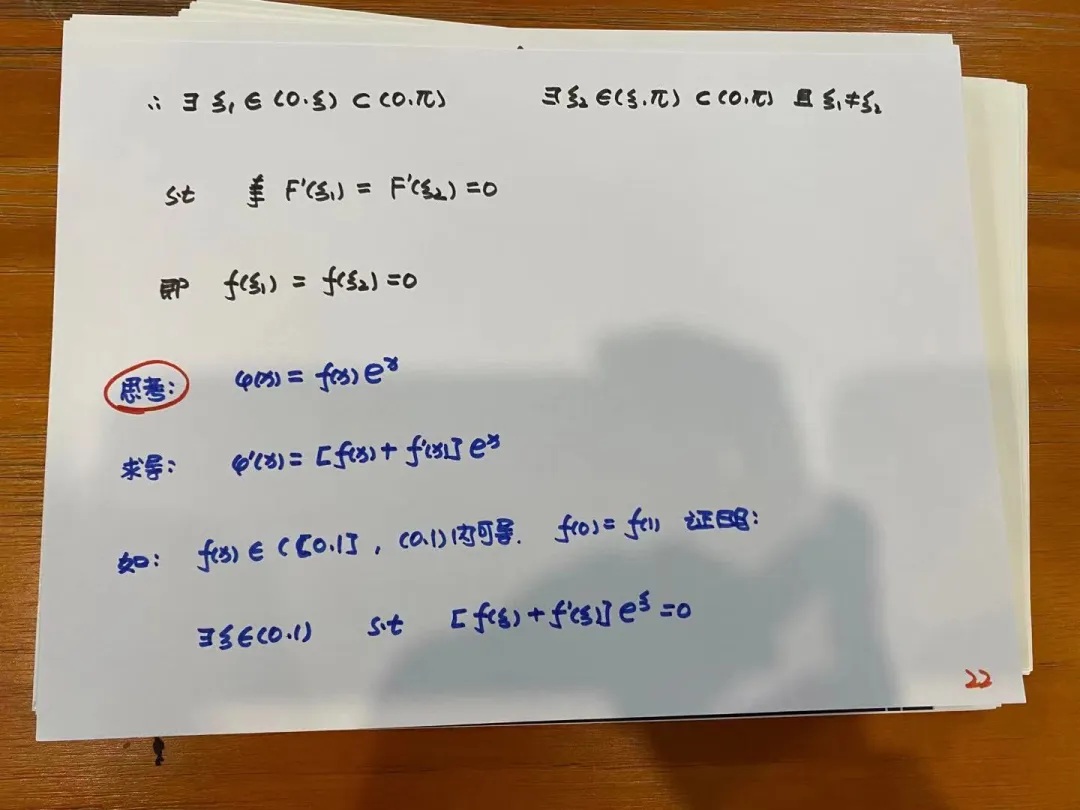 ∴ ∃ ξ₁ ∈ (0.ξ) ⊂ (0.π) ∃ ξ₂ ∈ (ξ.π) ⊂ (0.π) 且 ξ₁ ≠ ξ₂
s.t F'(ξ₁) = F'(ξ₂) = 0
即 f(ξ₁) = f(ξ₂) = 0
思考: φ(x) = f(x) eˣ
求导: φ'(x) = [f(x) + f'(x)] eˣ
如: f(x) ∈ C[0.1], (0.1) 内可导. f(0) = f(1) 证明:
∃ ξ ∈ (0.1) s.t [f(ξ) + f'(ξ)] e^ξ = 0
22